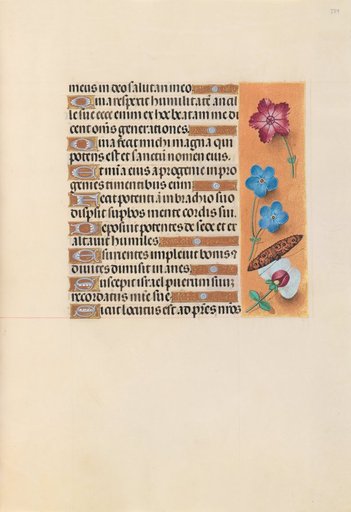 meus in deo salutari meo
Quia respexit humilitatē ancil
le sue ecce enim ex hoc beatam me di
cent om̄s generationes.
Quia fecit michi magna qui
potens est et sanctū nomen eius.
Et mīa eius a progenie in pro
genies timentibus eum
Fecit potentiā in brachio suo
dispsit supbos mente cordis sui.
Deposuit potentes de sede et ex
altauit humiles
Esurientes impleuit bonis ⁊
diuites dimisit inanes
Suscepit isrl puerum suū
recordatus mīe sue
Sicut locutus est ad pres nros